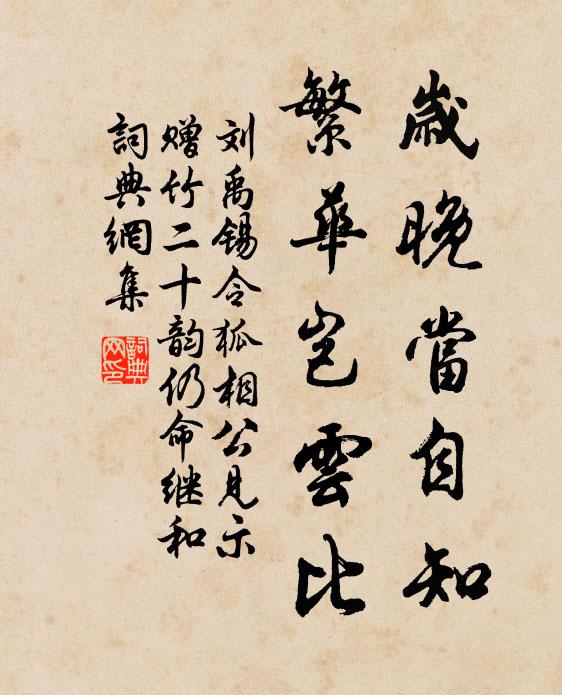 歲晚當自知
繁華豈雲比
刘禹锡令狐相公見示
赠竹二十韵仍命继和
詞典網集
詞典網印